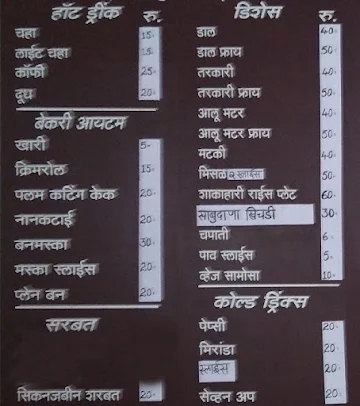 हॉट ड्रींक रु.
चहा 15-
लाईट चहा 15-
कॉफी 25-
दूध 20-
बेकरी आयटम
खारी 5-
क्रिमरोल 15-
पलम कटिंग केक 20-
नानकटाई 20-
बनमस्का 30-
मस्का स्लाईस 20-
प्लेन बन 20-
सरबत
सिकनजबीन शरबत 20-
डिशेस रु.
डाल 40-
डाल फ्राय 50-
तरकारी 40-
तरकारी फ्राय 50-
आलू मटर 40-
आलू मटर फ्राय 50-
मटकी 40-
मिसळ २ स्लाईस 50-
शाकाहारी राईस प्लेट 60-
साबुदाणा खिचडी 30-
चपाती 6-
पाव स्लाईस 5-
व्हेज सामोसा 10-
कोल्ड ड्रिंक्स
पेप्सी 20-
मिरांडा 20-
स्लाईस 20-
सेव्हन अप 20-